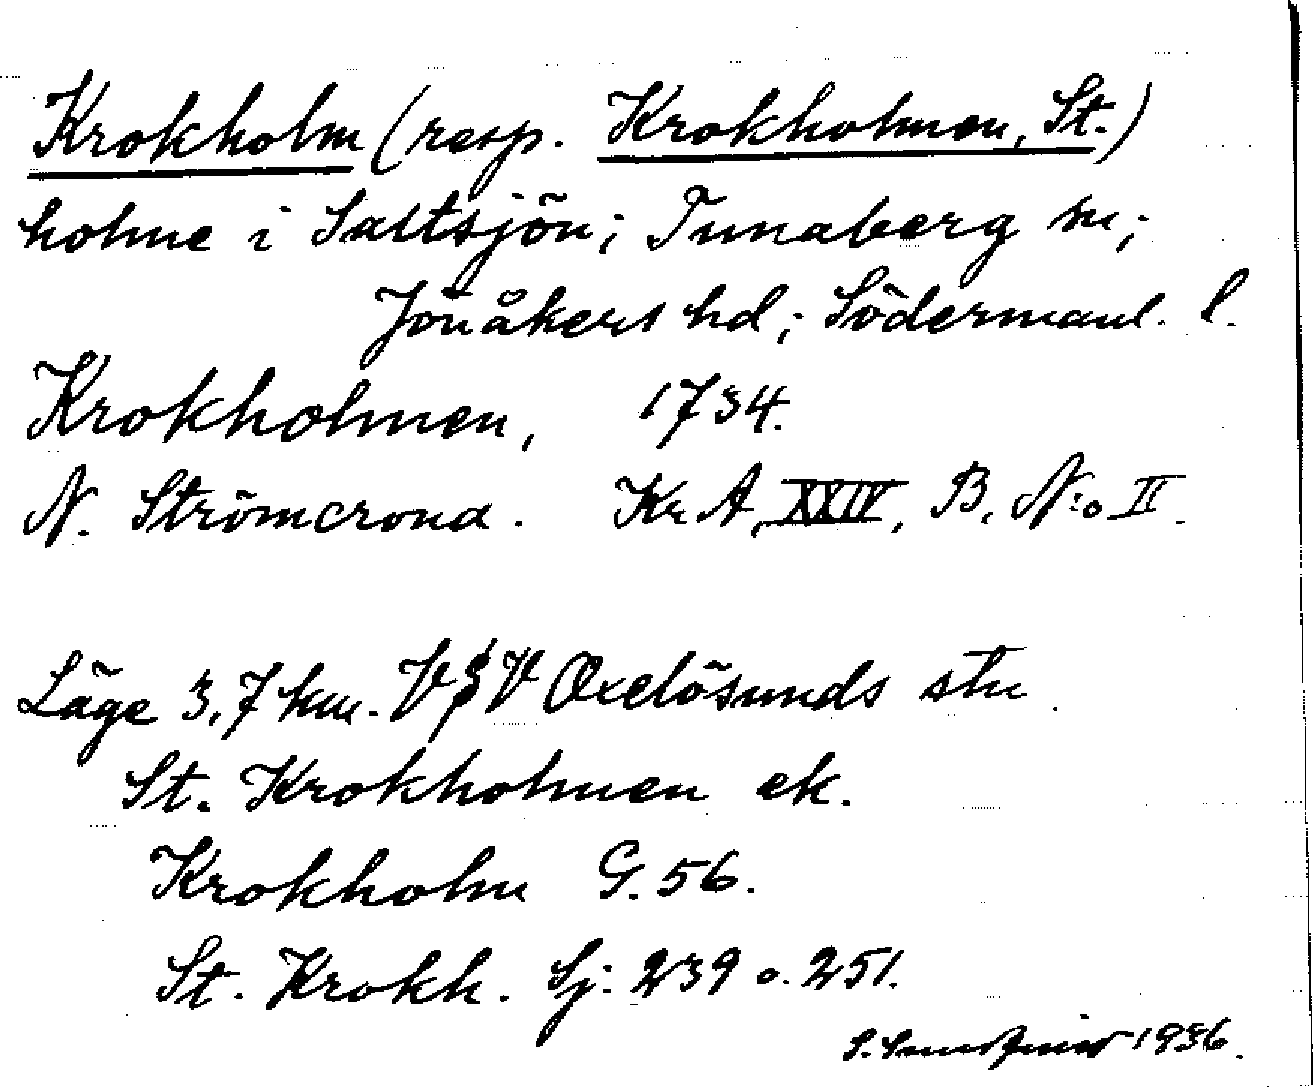 Krokholm (resp. Krokholmen, St.)
holme i Saltsjön; Tunaberg sn;
Jönåkers hd; Södermanl. l.
Krokholmen, 1734.
N. Strömcrona. Kr A, XXIV, B. N:o II.
Läge 3,7 km. VSV Oxelösunds stn.
St. Krokholmen ek.
Krokholm G. 56.
St. Krokh. Sj: 239 o. 251.
S. 1936.